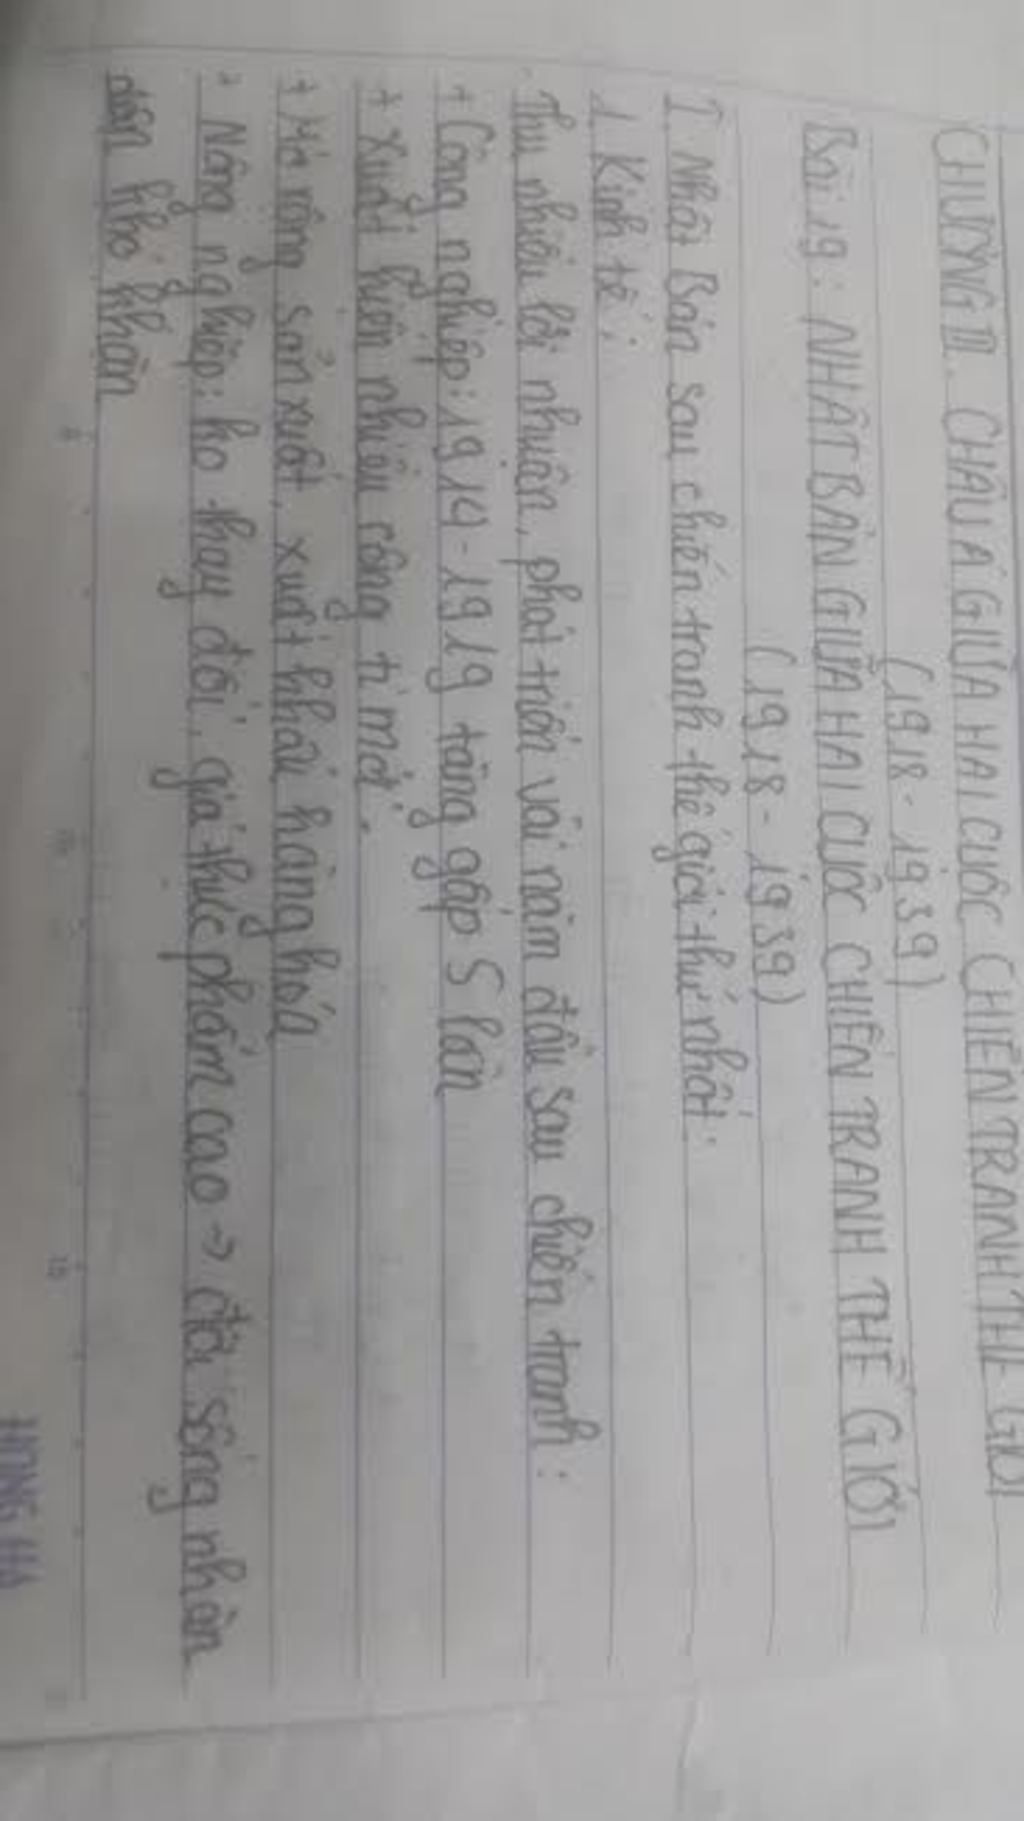 CHƯƠNG III. CHÂU Á GIỮA HAI CUỘC CHIẾN TRANH THẾ GIỚI
(1918 - 1939)
Bài 19: NHẬT BẢN GIỮA HAI CUỘC CHIẾN TRANH THẾ GIỚI
(1918 - 1939)
I. Nhật Bản sau chiến tranh thế giới thứ nhất:
1. Kinh tế:
- Thu nhiều lời nhuận, phát triển vài năm đầu sau chiến tranh:
+ Công nghiệp: 1914 - 1919 tăng gấp 5 lần
+ Xuất hiện nhiều công ti mới.
+ Mở rộng sản xuất, xuất khẩu hàng hoá
+ Nông nghiệp: ko thay đổi, giá thực phẩm cao → đời sống nhân
dân khó khăn
HONG HA